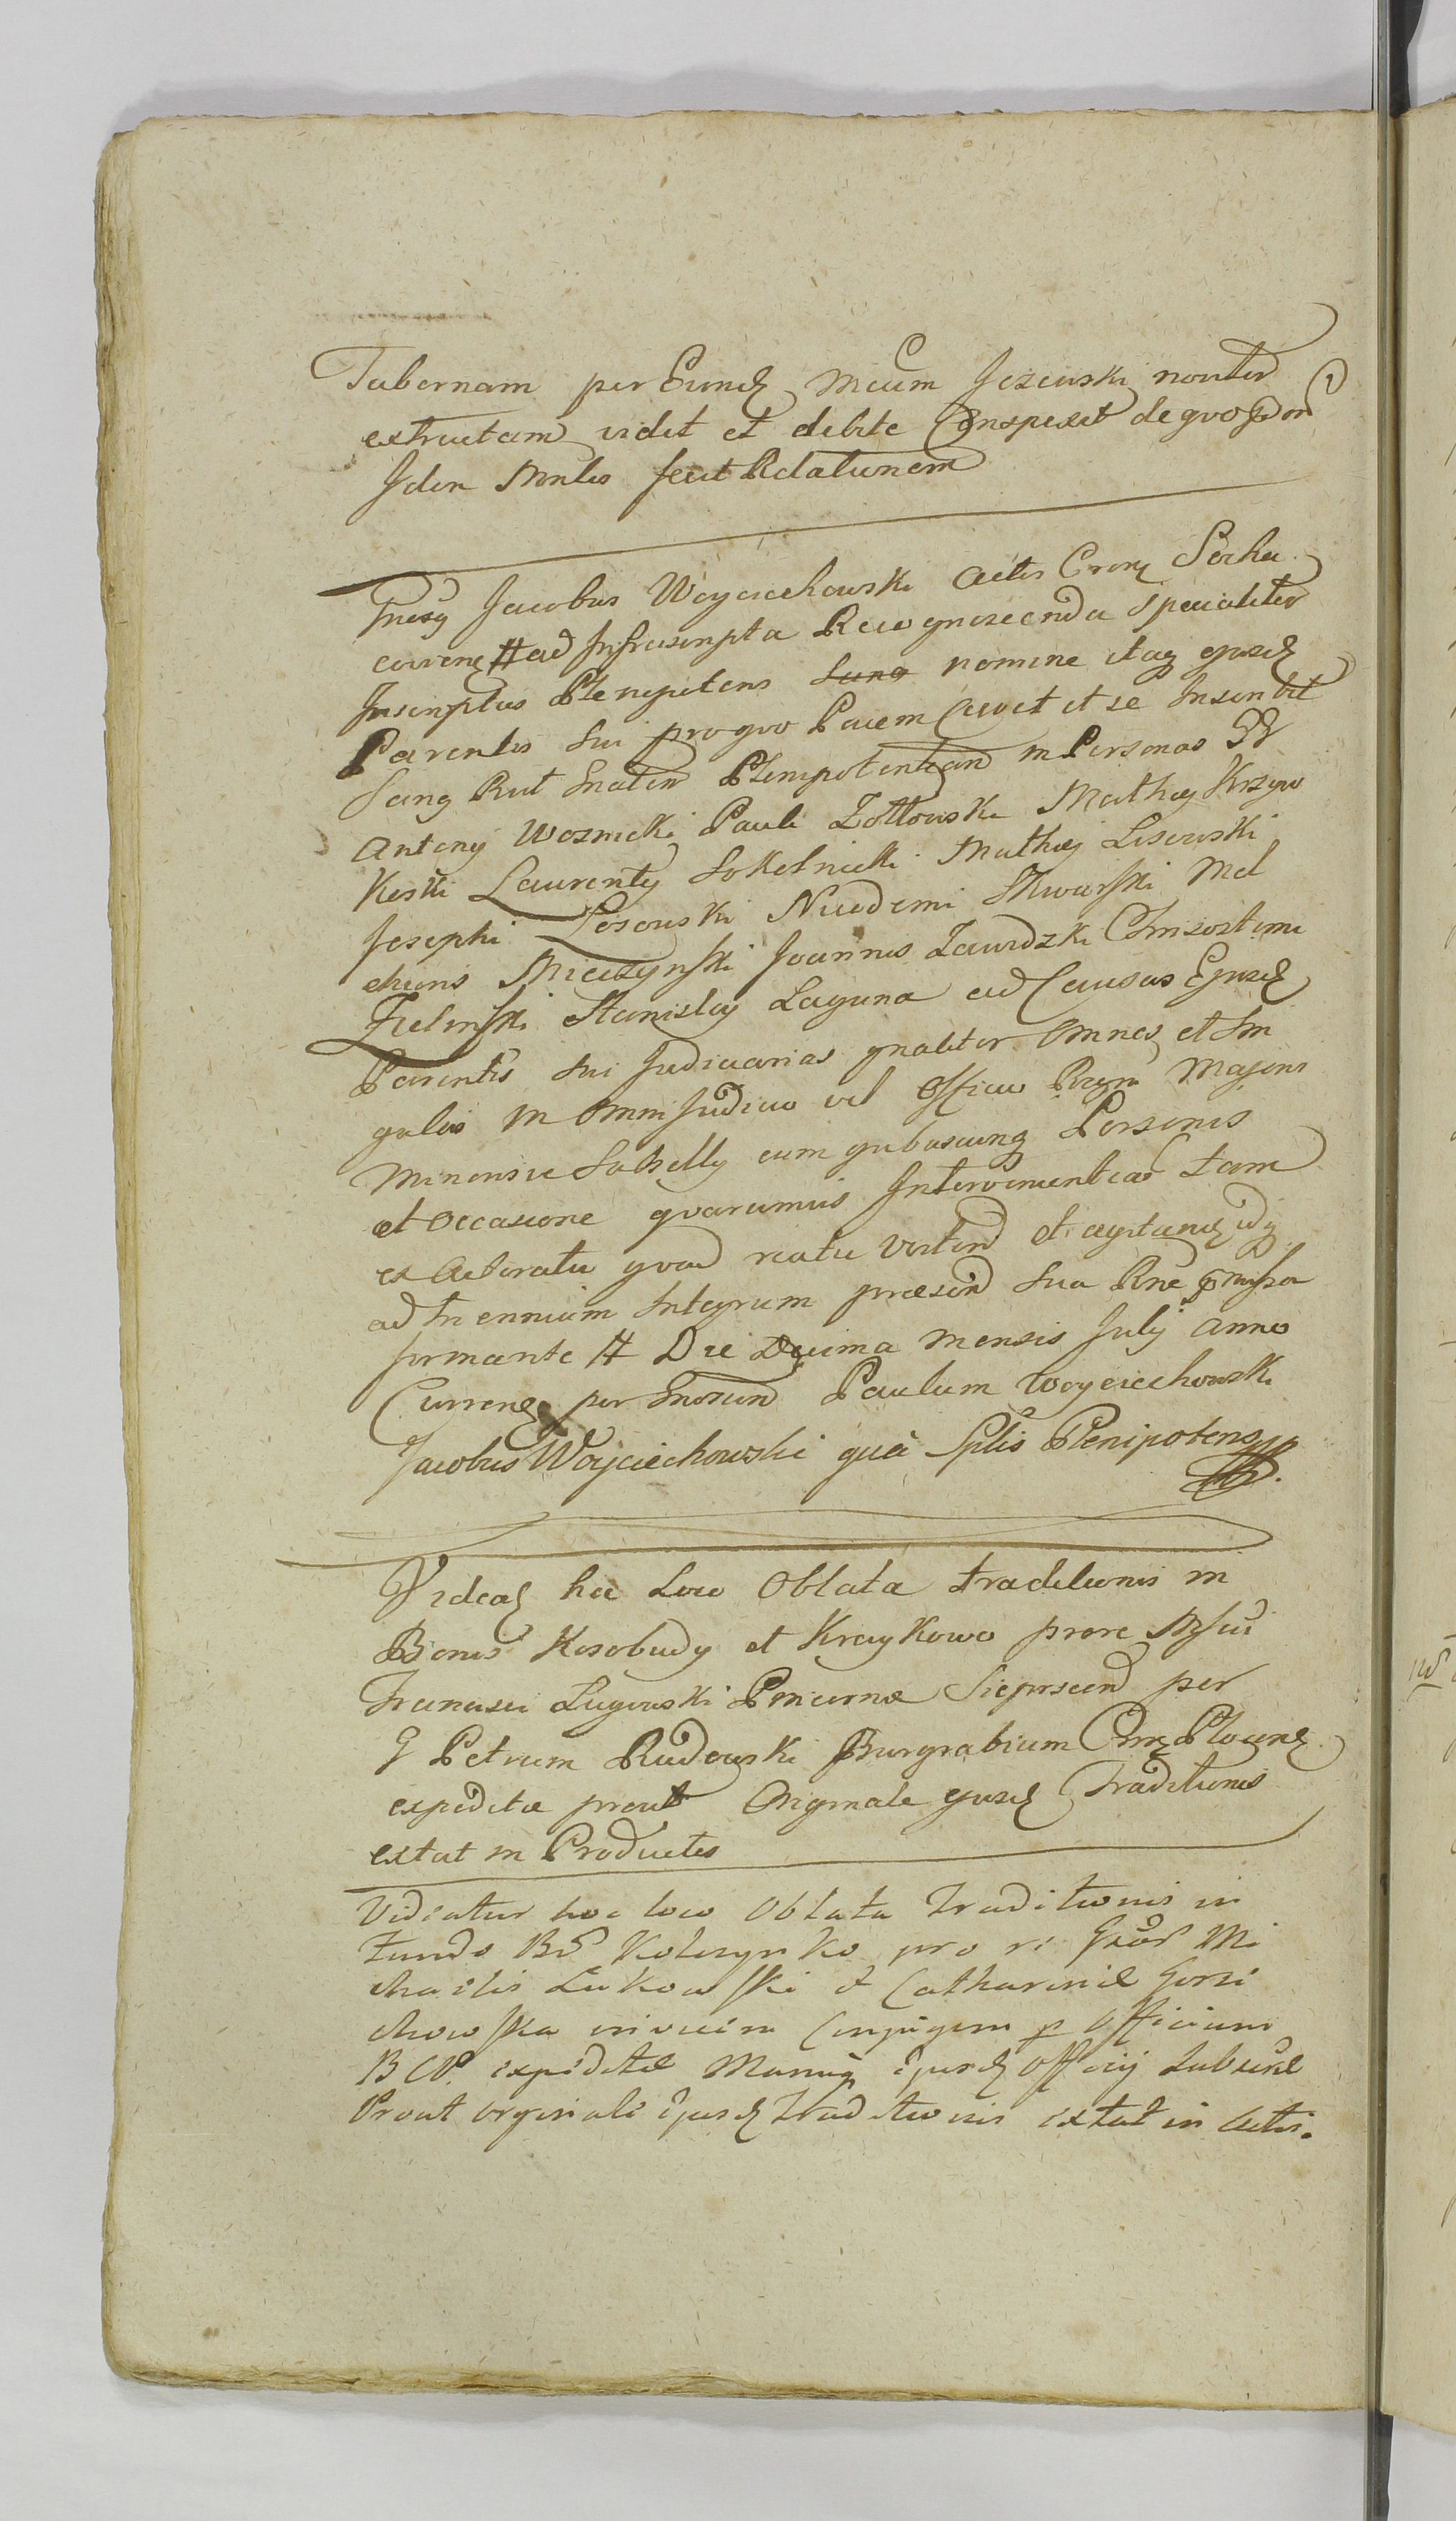 Tabernam per Eund Mcum Jezewski noviter
extructam vidit et debite Conspexit de quo
Iden Mnlis fecit Relationem
Gnesg Jacobus Woyciechowski Actis Crens Socha
covienς # ad Infrascripta Recognoscenda Specialiter
Inscriptus Plenipotens Suno nomine itaq ejusd
Parentis Sui pro quo Pacem Cavet et se Inscribit
Sang Rut Gnalem Plenipotentiam in Personas GG
Antonij Woznicki Pauli Zołtowski Mathej Krzyw
Koski Laurentij Sokolnicki Mathej Lisowski
Josephi Lesowski Nicodemi Skwarski Mel
chioris Mieczynski Joannis Zawidzki Chrisostomi
Zielinski Stanislaj Laguna ad Causas Ejusd
Parentis Sui Judiciarias gnaliter Omnes et Sin
gulas in Omni Judicio vel Officio Regni Majoris
Minorisve Subsellij cum quibuscunq Personis
et Occasione quarumvis Intervenientias tam
ex Actoratu quam reatu vertend et agitand idq
ad Triennium Integrum præsend Sua Rne præmissa
firmante # Die Decima Mensis Julij Anno
Currenς per Gnosum Paulum Woyciechowski
Jacobus Woyciechowski quà Splis Plenipotens mp.
Videaς hoc Loco Oblata traditionis in
Bonis Kosobudy et Kraykowo pro re Msci
Francisci Lugowski Pincernæ Sieprscens per
G Petrum Rudowski Burgrabium Cren Plocens
expeditæ prout Originale ejusd Traditionis
extat in Productis
Videatur hoc loco Oblata Traditionis in
Fundo Bon Kolczynko pro re Gnor Mi
chaelis Lukowski et Catharinæ Gorzi
chowska invicem Conjugum p Officium
B CP. expeditæ Manuq ejusd Officij Subscræ
Prout orginale ejusd Traditionis extat in Actis.